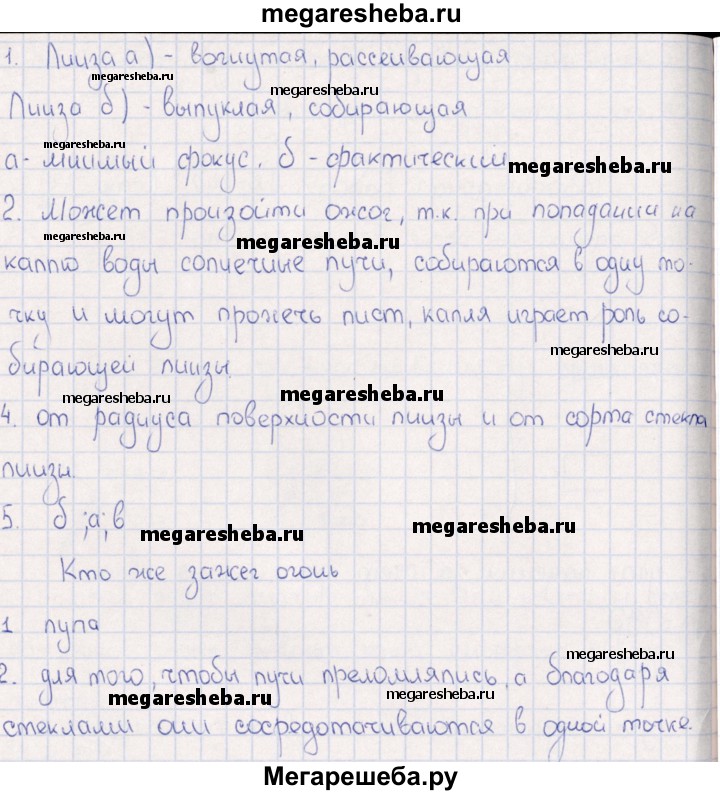 megaresheba.ru
1. Линза а) - вогнутая, рассеивающая
megaresheba.ru
megaresheba.ru
Линза б) - выпуклая, собирающая
megaresheba.ru
а - мнимый фокус, б - фрактический
megaresheba.ru
2. Может произойти ожог, т.к. при попадании на
megaresheba.ru
megaresheba.ru
каплю воды солнечные лучи, собираются в одну то-
чку и могут прожечь лист, капля играет роль со-
megaresheba.ru
бирающей линзы.
megaresheba.ru
megaresheba.ru
4. от радиуса поверхности линзы и от сорта стекла
линзы.
5. б ;а; в
megaresheba.ru
megaresheba.ru
Кто же зажег огонь
1 лупа
megaresheba.ru
2. для того, чтобы лучи преломлялись, а благодаря
megaresheba.ru
megaresheba.ru
стеклами они сосредотачиваются в одной точке.
Мегарешеба.ру